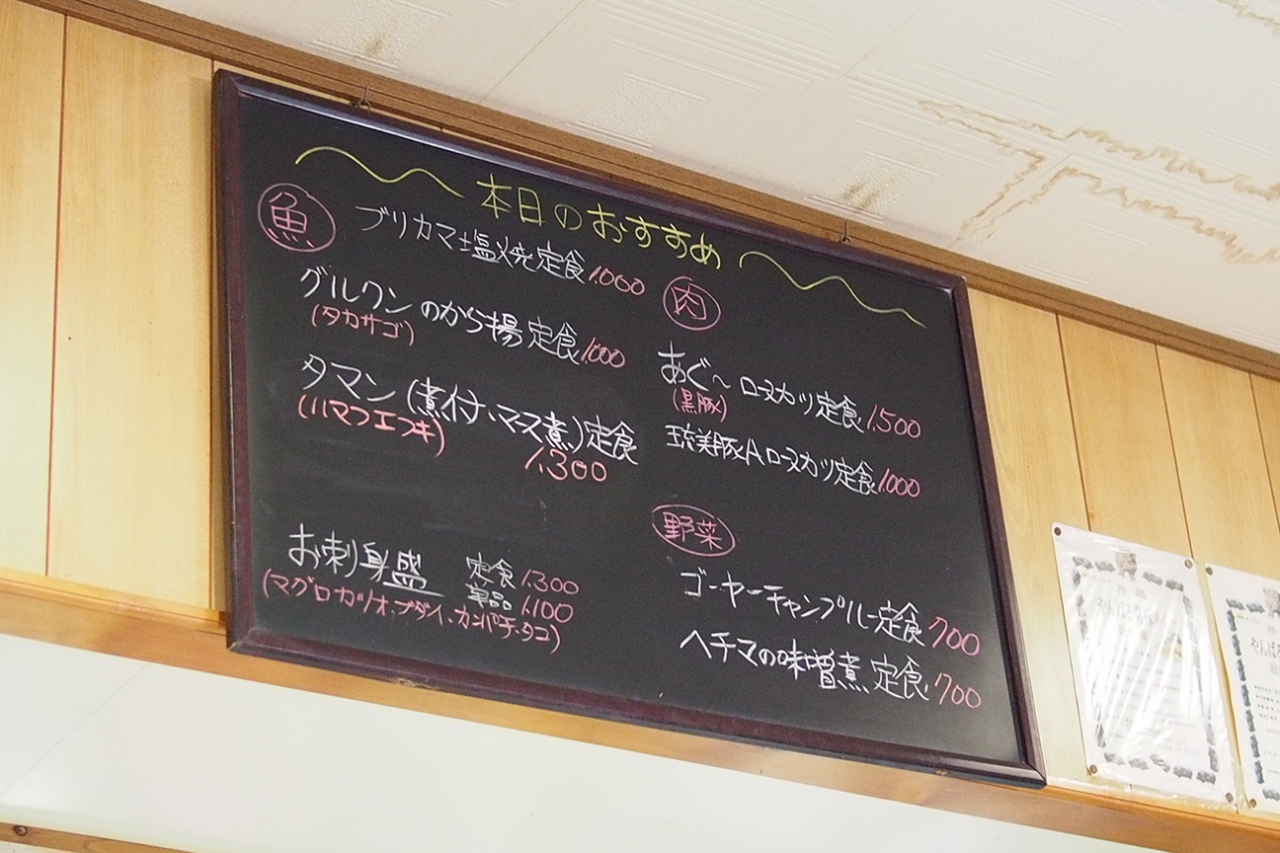 本日のおすすめ
魚
ブリカマ塩焼定食 1,000
グルクンのから揚定食 1,000
(タカサゴ)
タマン(煮付、マース煮)定食
(ハマフエフキ)
1,300
お刺身盛
定食 1,300
単品 1,100
(マグロ、カツオ、ブダイ、カンパチ、タコ)
肉
あぐ〜ロースカツ定食 1,500
(黒豚)
琉美豚Aロースカツ定食 1,000
野菜
ゴーヤーチャンプルー定食 700
ヘチマの味噌煮 定食 700